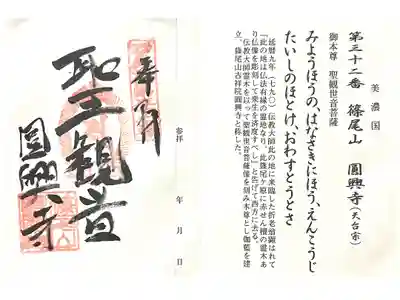 美濃国
第三十二番 篠尾山 圓興寺(天台宗)
御本尊 聖観世音菩薩
みようほうの、はなさきにほう、えんこうじ
たいしのほとけ、おわすとうとさ
延暦九年(七九〇)伝教大師此の地に来臨した折老翁顕はれて
「此の地は仏法有縁の霊地なり、此篠尾ケ原に赤せん檀の霊木あ
り仏像を彫刻して衆生を済度すべし」と告げて西方に去る。
伝教大師霊木を以って聖観世音菩薩像を刻み本尊とし伽藍を建
立、篠尾山吉祥院圓興寺と称した。
参拝 年 月 日
奉拝
聖観音
圓興寺